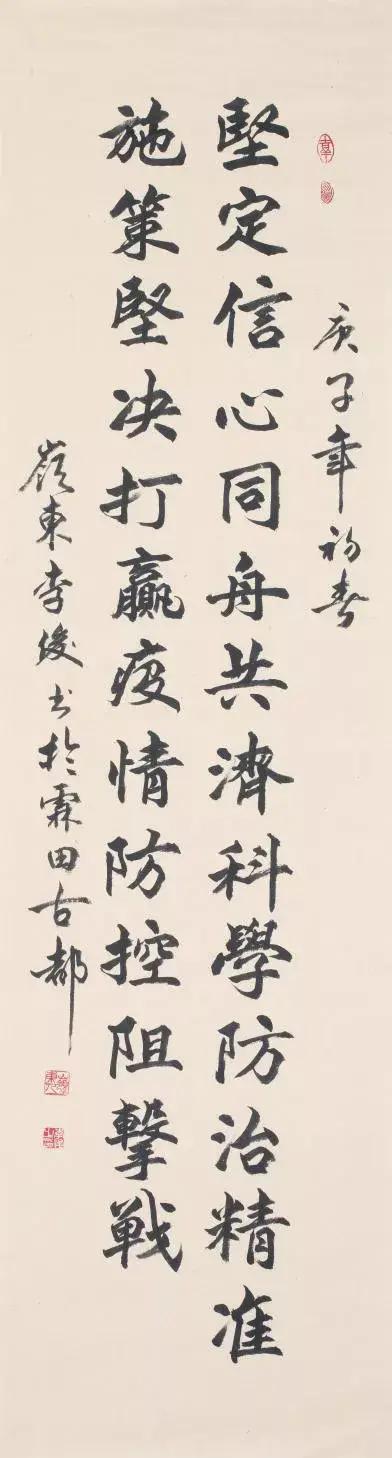 庚子年初春
堅定信心同舟共濟科學防治精准
施策堅决打贏疫情防控阻擊戰
嶺東李俊书於霖田古都